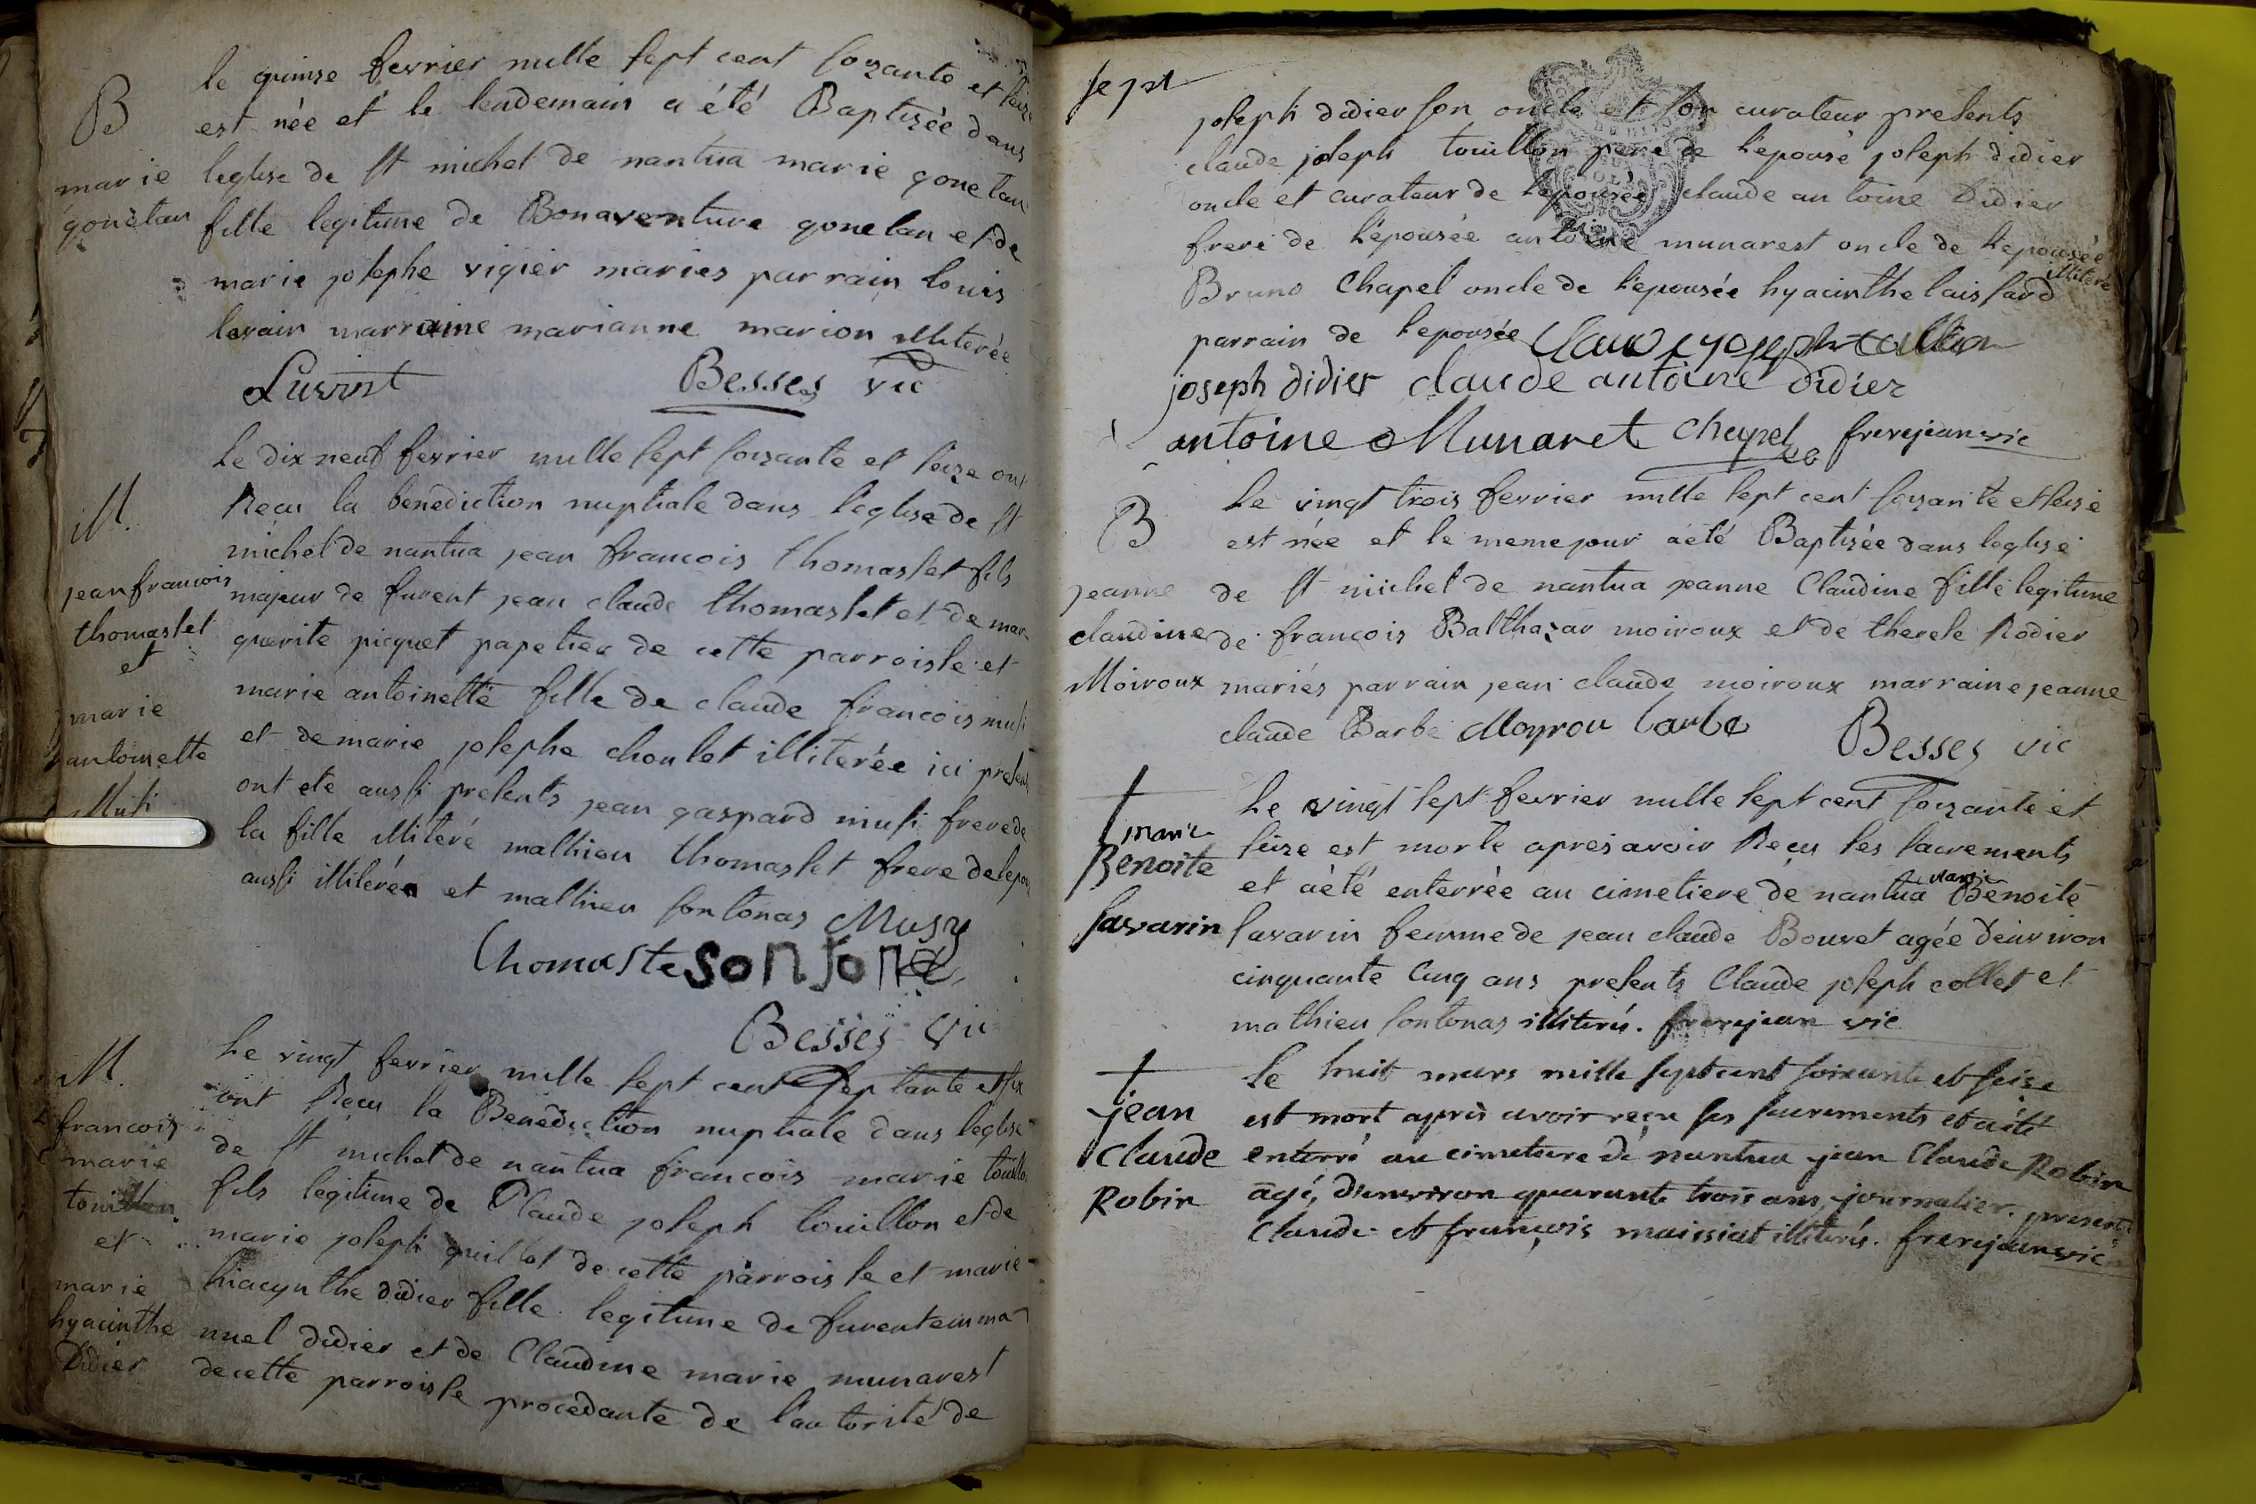 B
marie
gonetan
le quinse fevrier mille sept cent soizante et seize
est née et le lendemain a été Baptizée dans
leglise de st michel de nantua marie gonetan
fille legitime de Bonaventure gonetan et de
marie josephe vigier maries parrain louis
marraine marianne marion illiterée
Besses vic
M.
jean francois
thomasset
et
marie
antoinette
Musi
le dix neuf fevrier mille sept soizante et seize ont
Recu la benediction nuptiale dans leglise de st
michel de nantua jean francois thomasset fils
majeur de furent jean claude thomasset et de mar
guerite picquet papetier de cette parroisse et
marie antoinette fille de claude francois musi
et de marie josephe choulet illiterée ici presents
ont ete aussi presents jean gaspard musi frere de
la fille illiteré mathieu thomasset frere de lepoux
aussi illiterée et mathieu sontonas Musy
thomaste sonsona
Besses vic
M.
francois
marie
touillon
et
marie
hyacinthe
Didier
le vingt fevrier mille sept cent septante et six
ont Recu la Benediction nuptiale dans leglise
de st michel de nantua francois marie touillon
fils legitime de Claude joseph touillon et de
marie joseph guillot de cette parroisse et marie
hiacynthe didier fille legitime de furent emma
nuel didier et de Claudine marie munarest
de cette parroisse procedante de l'autorité de
sept
joseph didier son oncle et son curateur presents
claude joseph touillon pere de lepousé joseph didier
oncle et curateur de lepousée claude antoine Didier
frere de lépousée antoine munarest oncle de lepousée
illiteré
Bruno Chapel oncle de lepousée hyacinthe laissard
parrain de lepousée
joseph didier claude antoine didier
antoine Munaret chapel frerejean vic
B
jeanne
claudine
Moiroux
le vingt trois fevrier mille sept cent soizante et seise
est née et le meme jour a été Baptizée dans leglise
de st michel de nantua jeanne Claudine fille legitime
de francois Balthazar moiroux et de therese Rodier
mariés parrain jean claude moiroux marraine jeanne
claude Barbe Moyrou barbe
Besses vic
marie
Benoite
savarin
le vingt sept fevrier mille sept cent soizante et
seize est morte apres avoir Recu les sacrements
et a été enterrée au cimetiere de nantua marie Benoite
savarin femme de jean claude Bouvet agée denviron
cinquante cinq ans presents Claude joseph collet et
mathieu sontonas illiterés. frerejean vic
jean
Claude
Robin
le huit mars mille sept cent soixante et seise
est mort après avoir reçu ses sacrements et a été
enterré au cimetiere de nantua jean Claude Robin
agé, d'environ quarante trois ans, journalier. presents
Claude et françois maissiat illiterés. frerejean vic